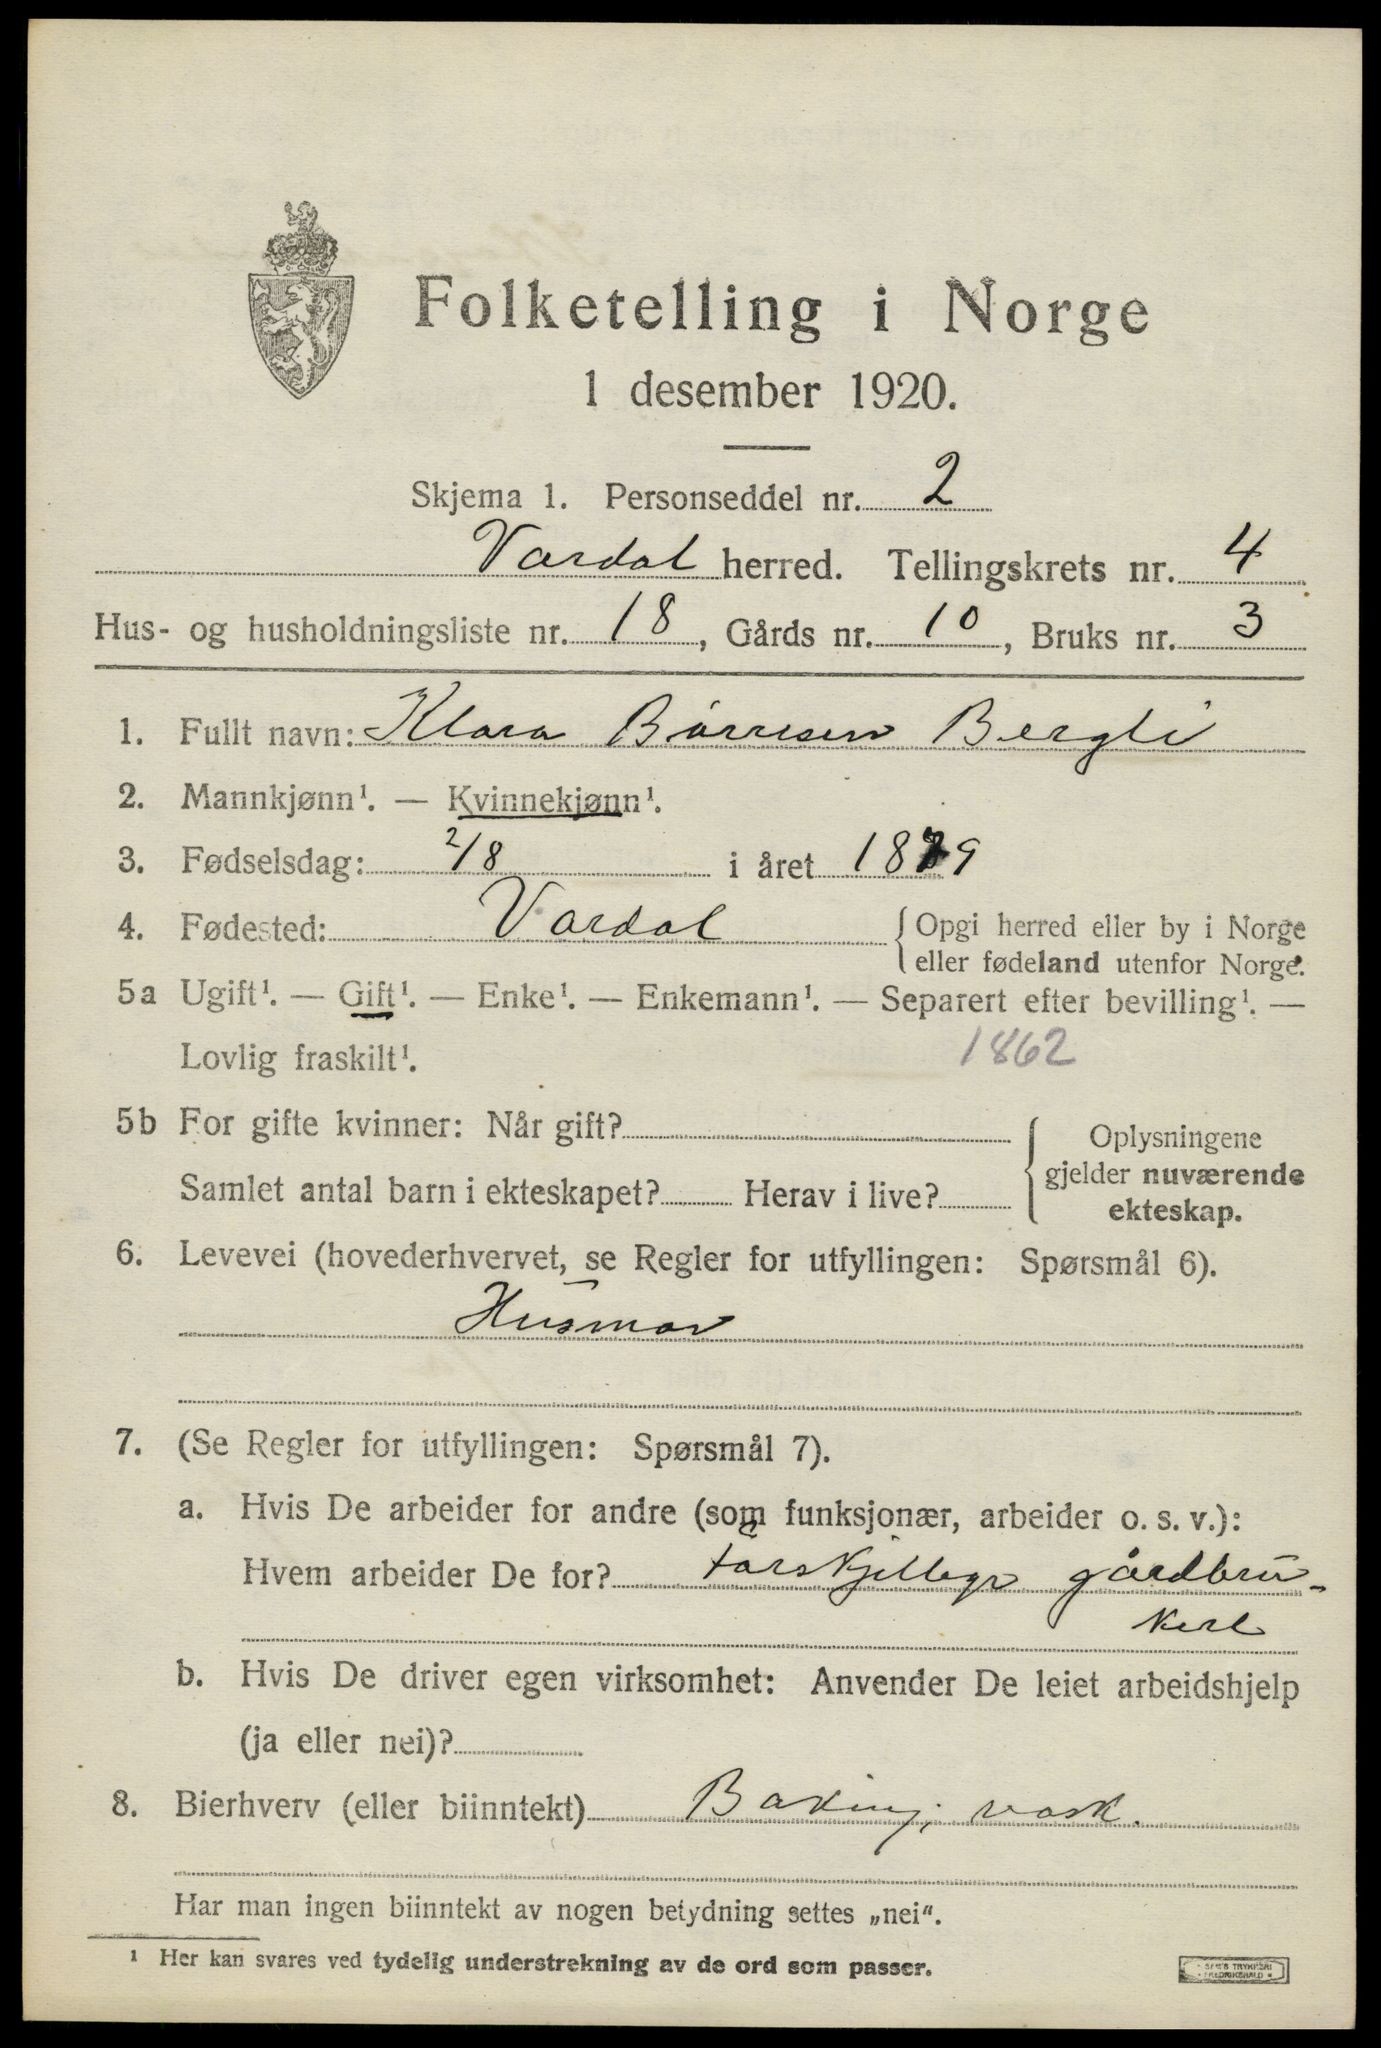 Folketelling i Norge
1 desember 1920.
Skjema 1. Personseddel nr. 2
Vardal herred. Tellingskrets nr. 4
Hus- og husholdningsliste nr. 18, Gårds nr. 10, Bruks nr. 3
1. Fullt navn: Klara Børresen Bergli
2. Mannkjønn¹. — Kvinnekjønn¹.
3. Fødselsdag: 2/8 i året 1879
4. Fødested: Vardal { Opgi herred eller by i Norge
eller fødeland utenfor Norge.
5a Ugift¹. — Gift¹. — Enke¹. — Enkemann¹. — Separert efter bevilling¹. —
Lovlig fraskilt¹. 1862
5b For gifte kvinner: Når gift?
Samlet antal barn i ekteskapet? Herav i live?
{ Oplysningene
gjelder nuværende
ekteskap.
6. Levevei (hovederhvervet, se Regler for utfyllingen: Spørsmål 6).
Husmor
7. (Se Regler for utfyllingen: Spørsmål 7).
a. Hvis De arbeider for andre (som funksjonær, arbeider o. s. v.):
Hvem arbeider De for? forskjellige gårdbru-
kere
b. Hvis De driver egen virksomhet: Anvender De leiet arbeidshjelp
(ja eller nei)?
8. Bierhverv (eller biinntekt) Baking, vask.
Har man ingen biinntekt av nogen betydning settes „nei“.
¹ Her kan svares ved tydelig understrekning av de ord som passer.
TRYKKERI
FREDRIKSHALD